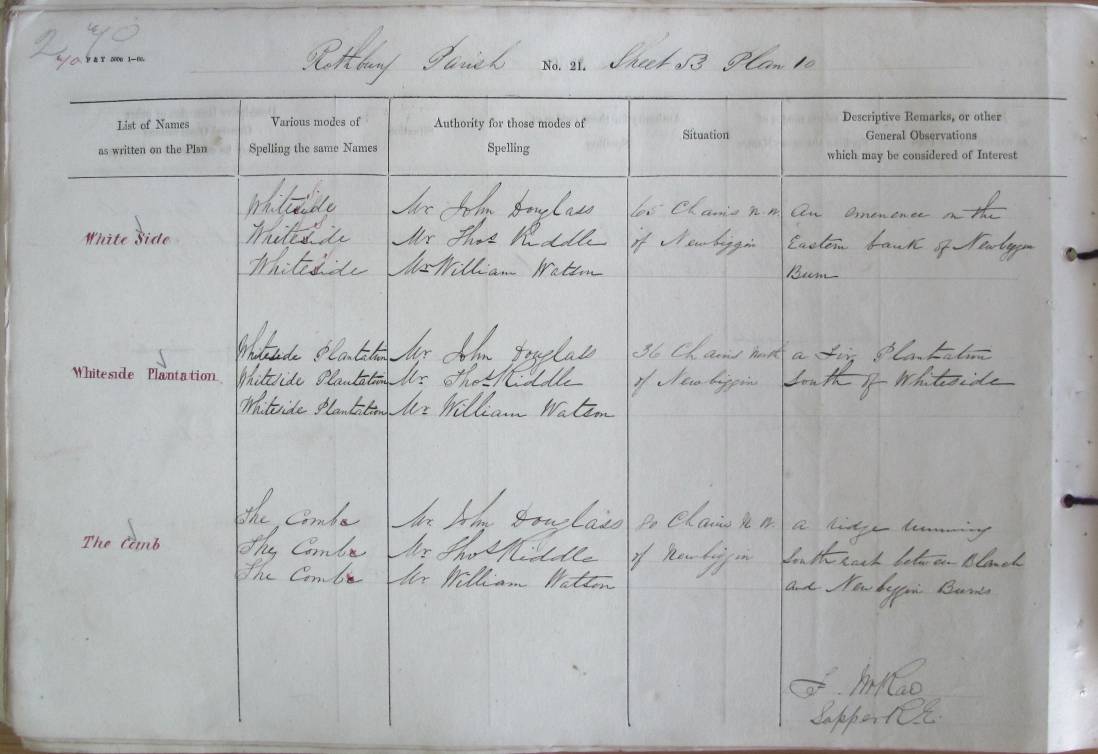 40
40 P & Y 5000 1-60.
Rothbury Parish No. 21. Sheet 53 Plan 10
List of Names
as written on the Plan
Various modes of
Spelling the same Names
Authority for those modes of
Spelling
Situation
Descriptive Remarks, or other
General Observations
which may be considered of Interest
White Side
Whiteside
Whiteside
Whiteside
Mr John Douglass
Mr Thos Riddle
Mr William Watson
65 Chains N.W.
of Newbiggin
An emenence on the
Eastern bank of Newbiggin
Burn
Whiteside Plantation
Whiteside Plantation
Whiteside Plantation
Whiteside Plantation
Mr John Douglass
Mr Thos Riddle
Mr William Watson
36 Chains North
of Newbiggin
a Fir Plantation
South of Whiteside
The Comb
The Combe
The Combe
The Combe
Mr John Douglass
Mr Thos Riddle
Mr William Watson
80 Chains N.W.
of Newbiggin
a ridge running
South east between Blanch
and Newbiggin Burns
McRae
Sapper R.E.